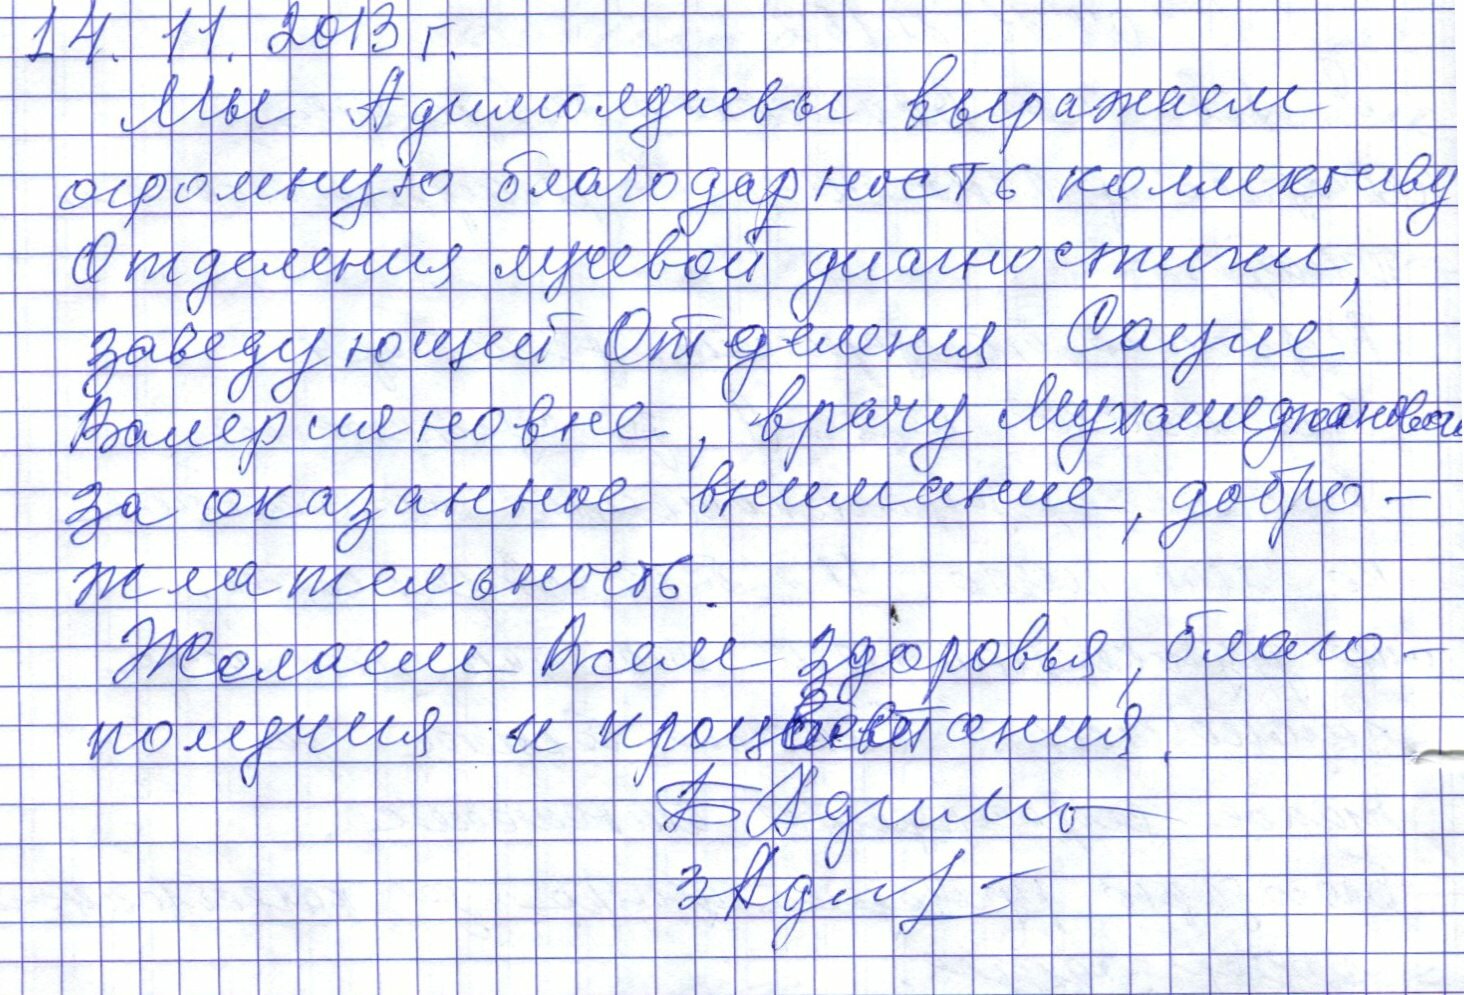 14. 11. 2013 г.
Мы Адимолдаевы выражаем
огромную благодарность коллективу
Отделения лучевой диагностики,
заведующей Отделения Сауле
Валерияновне, врачу Мухамеджановой
за оказанное внимание, добро-
жлательность.
Желаем Всем здоровья, благо-
получия и процветания.